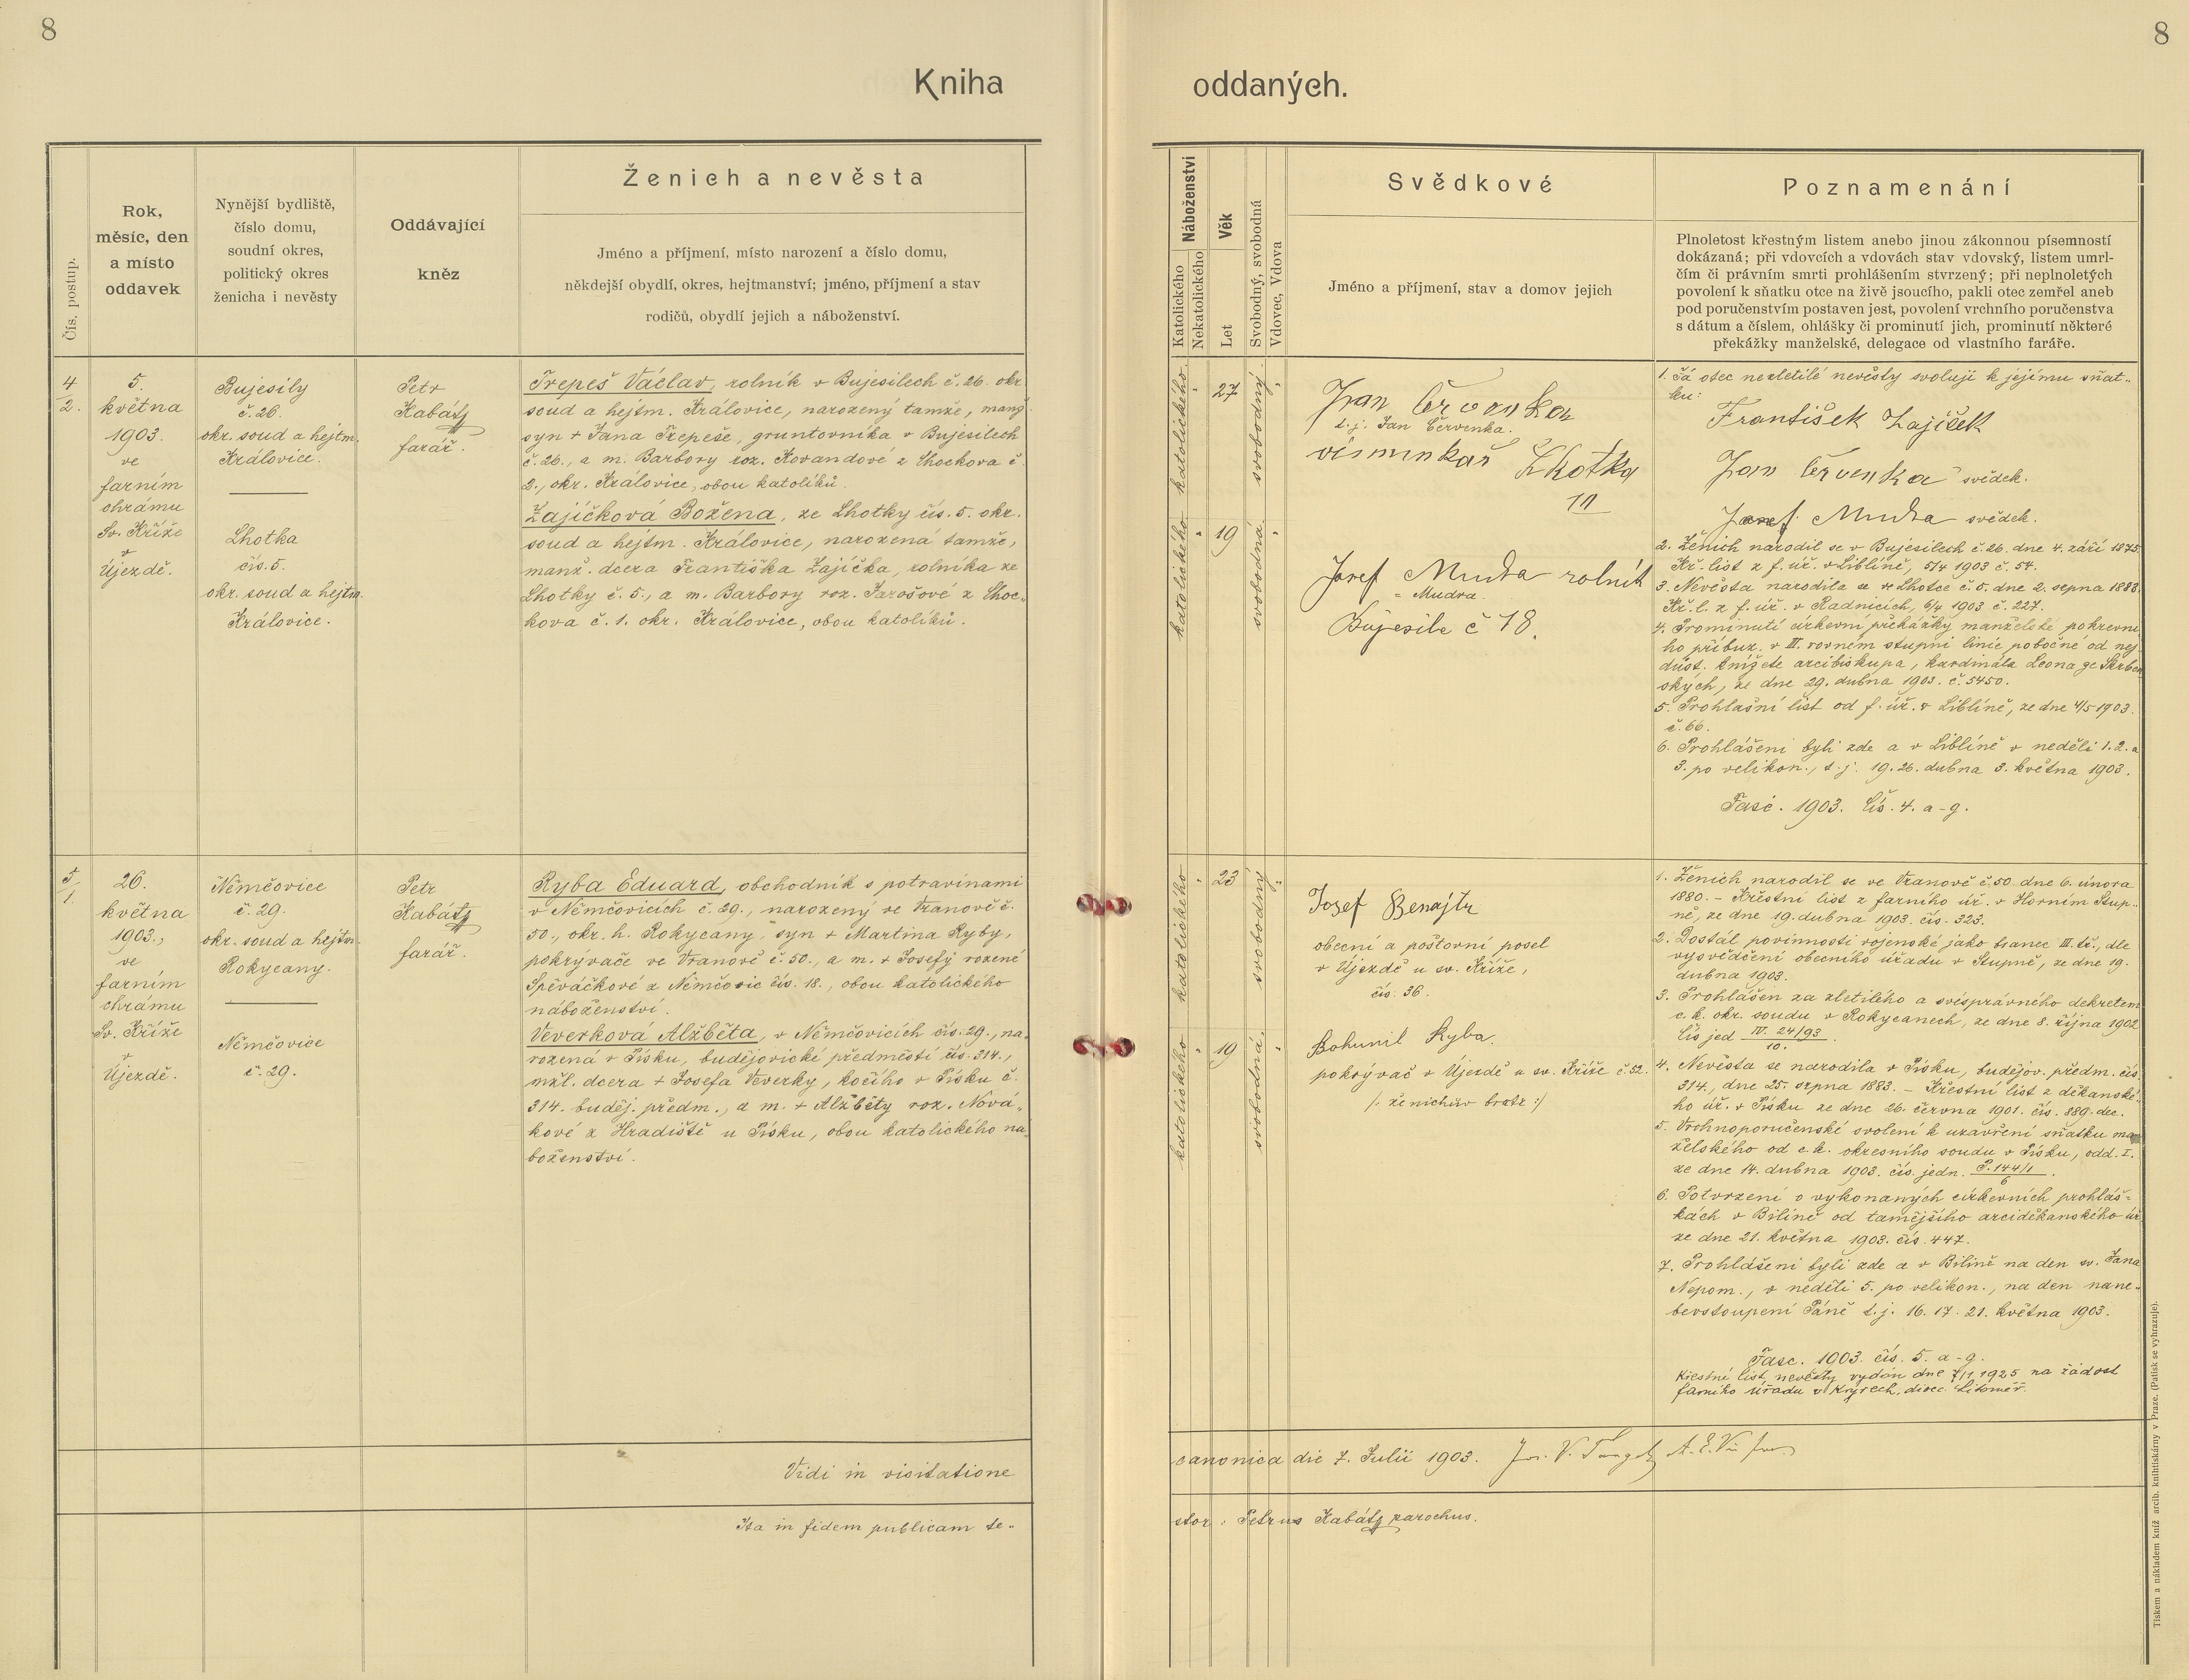 8
8
Kniha
oddaných.
Čís. postup.
Rok,
měsíc, den
a místo
oddavek
Nynější bydliště,
číslo domu,
soudní okres,
politický okres
ženicha i nevěsty
Oddávající
kněz
Ženich a nevěsta
Jméno a příjmení, místo narození a číslo domu,
někdejší obydlí, okres, hejtmanství; jméno, příjmení a stav
rodičů, obydlí jejich a náboženství.
Náboženství
Katolického
Nekatolického
Věk
Let
Svobodný, svobodná
Vdovec, Vdova
Svědkové
Jméno a příjmení, stav a domov jejich
Poznamenání
Plnoletost křestným listem anebo jinou zákonnou písemností
dokázaná; při vdovcích a vdovách stav vdovský, listem umrl-
čím či právním smrti prohlášením stvrzený; při neplnoletých
povolení k sňatku otce na živě jsoucího, pakli otec zemřel aneb
pod poručenstvím postaven jest, povolení vrchního poručenstva
s dátum a číslem, ohlášky či prominutí jich, prominutí některé
překážky manželské, delegace od vlastního faráře.
4/2.
5.
května
1903.
ve
farním
chrámu
Sv. Kříže
v
Újezdě.
Bujesily
č. 26.
okr. soud a hejtm.
Královice.
Lhotka
čís. 5.
okr. soud a hejtm.
Královice.
Petr
Kabátz
farář.
Trepeš Václav, rolník v Bujesilech č. 26. okr.
soud a hejtm. Královice, narozený tamže, manž.
syn + Jana Trepeše, gruntovníka v Bujesilech
č. 26., a m. Barbory roz. Kovandové z Chockova č.
2., okr. Královice, obou katolíků.
Zajíčková Božena, ze Lhotky čís. 5. okr.
soud a hejtm. Královice, narozená tamže,
manž. dcera Františka Zajíčka, rolníka ze
Lhotky č. 5., a m. Barbory roz. Jarošové z Choc-
kova č. 1. okr. Královice, obou katolíků.
katolického
27
svobodný
katolického
19
svobodná
Jan Červenka
t. j. Jan Červenka.
výminkař Lhotka
11
Josef Mudra rolník
= Mudra.
Bujesile č 18.
1. Já otec nezletilé nevěsty svoluji k jejímu sňat-
ku:
František Zajíček
Jan Červenka svědek.
Josef Mudra svědek.
2. Ženich narodil se v Bujesilech č. 26. dne 4. září 1875.
Kř. list z f. úř. v Liblíně, 5/4 1903 č. 54.
3. Nevěsta narodila se ve Lhotce č. 5. dne 2. srpna 1883.
Kř. l. z f. úř. v Radnicích, 6/4 1903 č. 227.
4. Prominutí církevní překážky manželské pokrevní-
ho příbuz. v III. rovném stupni linie pobočné od nej-
důst. knížete arcibiskupa, kardinála Leona ze Skrben-
ských, ze dne 29. dubna 1903. č. 5450.
5. Prohlašní list od f. úř. v Liblíně, ze dne 4/5 1903.
č. 66.
6. Prohlášeni byli zde a v Liblíně v neděli 1. 2. a
3. po velikon., t. j. 19. 26. dubna 3. května 1903.
Fasc. 1903. čís. 4. a-g.
5/1.
26.
května
1903.,
ve
farním
chrámu
Sv. Kříže
v
Újezdě.
Němčovice
č. 29.
okr. soud a hejtm.
Rokycany.
Němčovice
č. 29.
Petr
Kabátz
farář.
Ryba Eduard, obchodník s potravinami
v Němčovicích č. 29., narozený ve Vranově č.
50., okr. h. Rokycany, syn + Martina Ryby,
pokrývače ve Vranově č. 50., a m. + Josefy rozené
Spěváčkové z Němčovic čís. 18., obou katolického
náboženství.
Veverková Alžběta, v Němčovicích čís. 29., na-
rozená v Písku, budějovické předměstí čís. 314.,
mžl. dcera + Josefa Veverky, kočího v Písku č.
314. buděj. předm., a m. + Alžběty roz. Nová-
kové z Hradiště u Písku, obou katolického ná-
boženství.
katolického
23
svobodný
katolického
19
svobodná
Josef Benajtr
obecní a poštovní posel
v Újezdě u sv. Kříže,
čís. 36.
Bohumil Ryba.
pokrývač v Újezdě u sv. Kříže č. 52.
/: ženichův bratr :/
1. Ženich narodil se ve Vranově č. 50. dne 6. února
1880. - Křestní list z farního úř. v Horním Stup-
ně, ze dne 19. dubna 1903. čís. 323.
2. Dostál povinnosti vojenské jako branec III. tř., dle
vysvědčení obecního úřadu v Stupně, ze dne 19.
dubna 1903.
3. Prohlášen za zletilého a svéprávného dekretem
c. k. okr. soudu v Rokycanech, ze dne 8. října 1902
čís jed IV. 24/93
10.
4. Nevěsta se narodila v Písku, budějov. předm. čís.
314., dne 25. srpna 1883. - Křestní list z děkanské-
ho úř. v Písku ze dne 26. června 1901. čís. 889. dec.
5. Vrchnoporučenské svolení k uzavření sňatku man-
želského od c. k. okresního soudu v Písku, odd. I.
ze dne 14. dubna 1903. čís. jedn. P. 144/1
6
6. Potvrzení o vykonaných církevních prohláš-
kách v Bílině od tamějšího arciděkanského úř.
ze dne 21. května 1903. čís. 447.
7. Prohlášeni byli zde a v Bílině na den sv. Jana
Nepom., v neděli 5. po velikon., na den nane-
bevstoupení Páně t. j. 16. 17. 21. května 1903.
Fasc. 1903. čís. 5. a-g.
Křestní list nevěsty vydán dne 7/11 1925 na žádost
farního úřadu v Kryrech, diec. Litoměř.
Vidi in visitatione
canonica die 7. Julii 1903.
Ita in fidem publicam te-
stor: Petrus Kabátz parochus.
Tiskem a nákladem kníž. arcib. knihtiskárny v Praze. (Patisk se vyhrazuje).